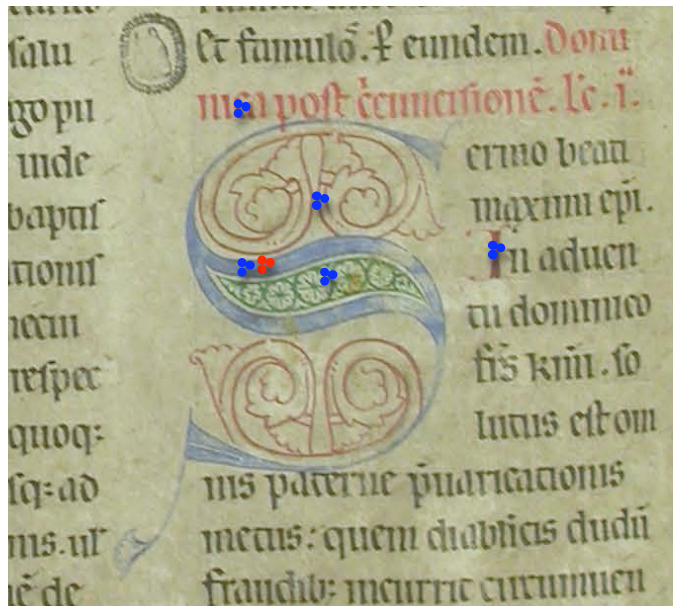 salu
go pu
inde
baptis
tionis
necin
respec
quoq:
sq: ad
nis. ul
de
Et famulo. P eundem. Domi
nica post circuncisione. Lc. i.
Sermo beati
maximi epi.
In aduen
tu dominico
frs kmi. so
lutus est om
nis paterne puaricationis
metus: quem diabticis dudu
fraudib: meurrit circumuen